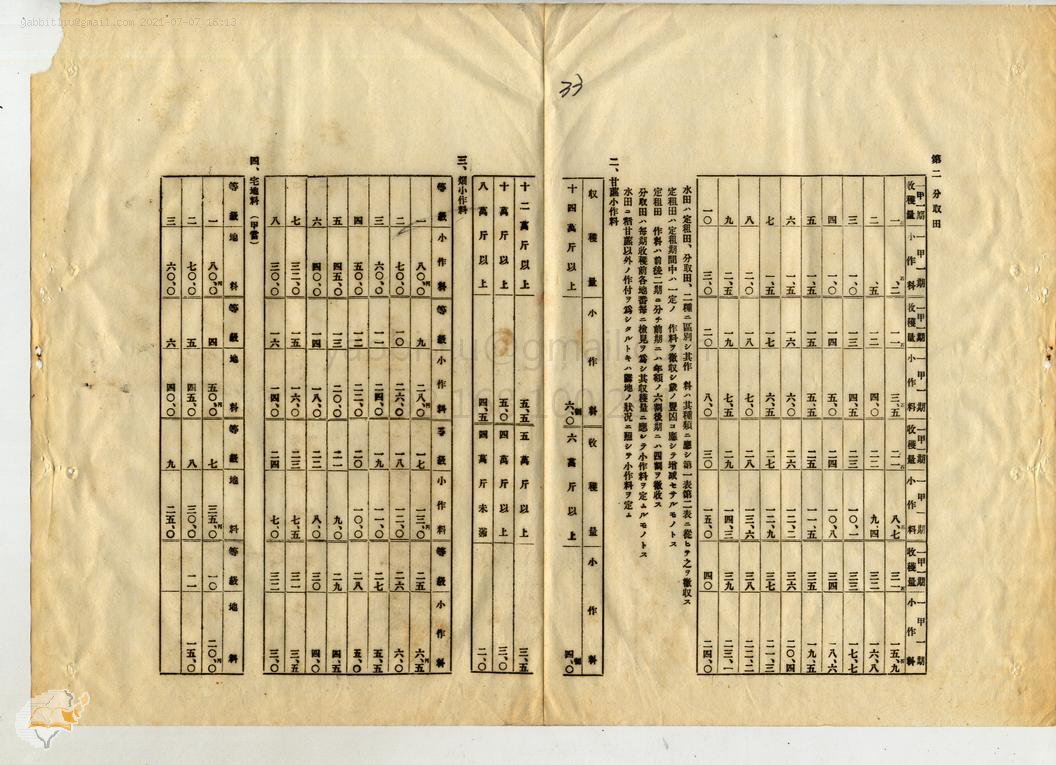 gabbitliu@gmail.com 2021-07-07 16:13
33
第二 分取田
一甲一期收穫量 一甲一期小作料 一甲一期收穫量 一甲一期小作料 一甲一期收穫量 一甲一期小作料 一甲一期收穫量 一甲一期小作料
一 、二 一一 三、五 二一 八、七 三一 一五、九
二 、五 一二 四、〇 二二 九、四 三二 一六、八
三 一、〇 一三 四、五 二三 一〇、一 三三 一七、七
四 一、〇 一四 五、〇 二四 一〇、八 三四 一八、六
五 一、〇 一五 五、五 二五 一一、五 三五 一九、五
六 一、五 一六 六、〇 二六 一二、二 三六 二〇、四
七 一、五 一七 六、五 二七 一二、九 三七 二一、三
八 二、〇 一八 七、〇 二八 一三、六 三八 二二、二
九 二、五 一九 七、五 二九 一四、三 三九 二三、一
一〇 三、〇 二〇 八、〇 三〇 一五、〇 四〇 二四、〇
水田ハ定租田、分取田、二種ニ區別シ其作 料ハ其種類ニ應シ第一表第二表ニ從ヒテ之ヲ徵収ス
定租田ハ定租期間中ハ一定ノ 作料ヲ徵収シ歲ノ豐凶ニ應シテ增減セサルモノトス
定租田 作料ハ前後二期ニ分チ前期ニハ年額ノ六割後期ニハ四割ヲ徵收ス
分取田ハ每期收穫前各地番每ニ檢見ヲ爲シ其収穫量ニ應シテ小作料ヲ定ムルモノトス
水田ニ稻甘蔗以外ノ作付ヲ爲シタルトキハ隣地ノ狀況ニ照シテ小作料ヲ定ム
二、甘蔗小作料
収穫量 小作料 收穫量 小作料
十四萬斤以上 六、〇割 六萬斤以上 四、〇割
十二萬斤以上 五、五 五萬斤以上 三、五
十萬斤以上 五、〇 四萬斤以上 三、〇
八萬斤以上 四、五 四萬斤未滿 二、〇
三、畑小作料
等級 小作料 等級 小作料 等級 小作料 等級 小作料
一 八〇、〇円 九 二八、〇円 一七 一三、〇円 二五 六、五円
二 七〇、〇 一〇 二六、〇 一八 一二、〇 二六 六、〇
三 六〇、〇 一一 二四、〇 一九 一一、〇 二七 五、五
四 五〇、〇 一二 二二、〇 二〇 一〇、〇 二八 五、〇
五 四五、〇 一三 二〇、〇 二一 九、〇 二九 四、五
六 四〇、〇 一四 一八、〇 二二 八、〇 三〇 四、〇
七 三二、〇 一五 一六、〇 二三 七、五 三一 三、五
八 三〇、〇 一六 一四、〇 二四 七、〇 三二 三、〇
四、宅地料(甲當)
等級 地料 等級 地料 等級 地料 等級 地料
一 八〇、〇円 四 五〇、〇円 七 三五、〇円 一〇 二〇、〇円
二 七〇、〇 五 四五、〇 八 三〇、〇 一一 一五、〇
三 六〇、〇 六 四〇、〇 九 二五、〇